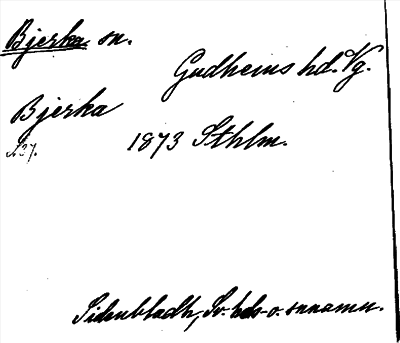 Bjerka sn.
Gudhems hd. Vg.
Bjerka
1873 Sthlm.
N27.
Sidenbladh, Sv. bds- o. snnamn.